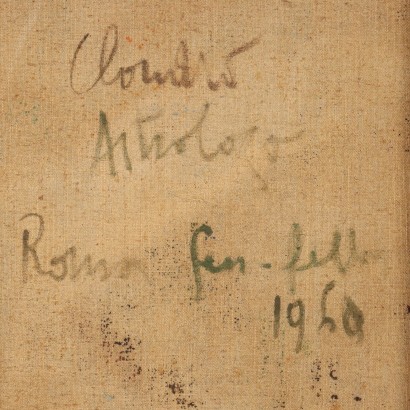 Astrologo
Roma Gen. - febb.
1960